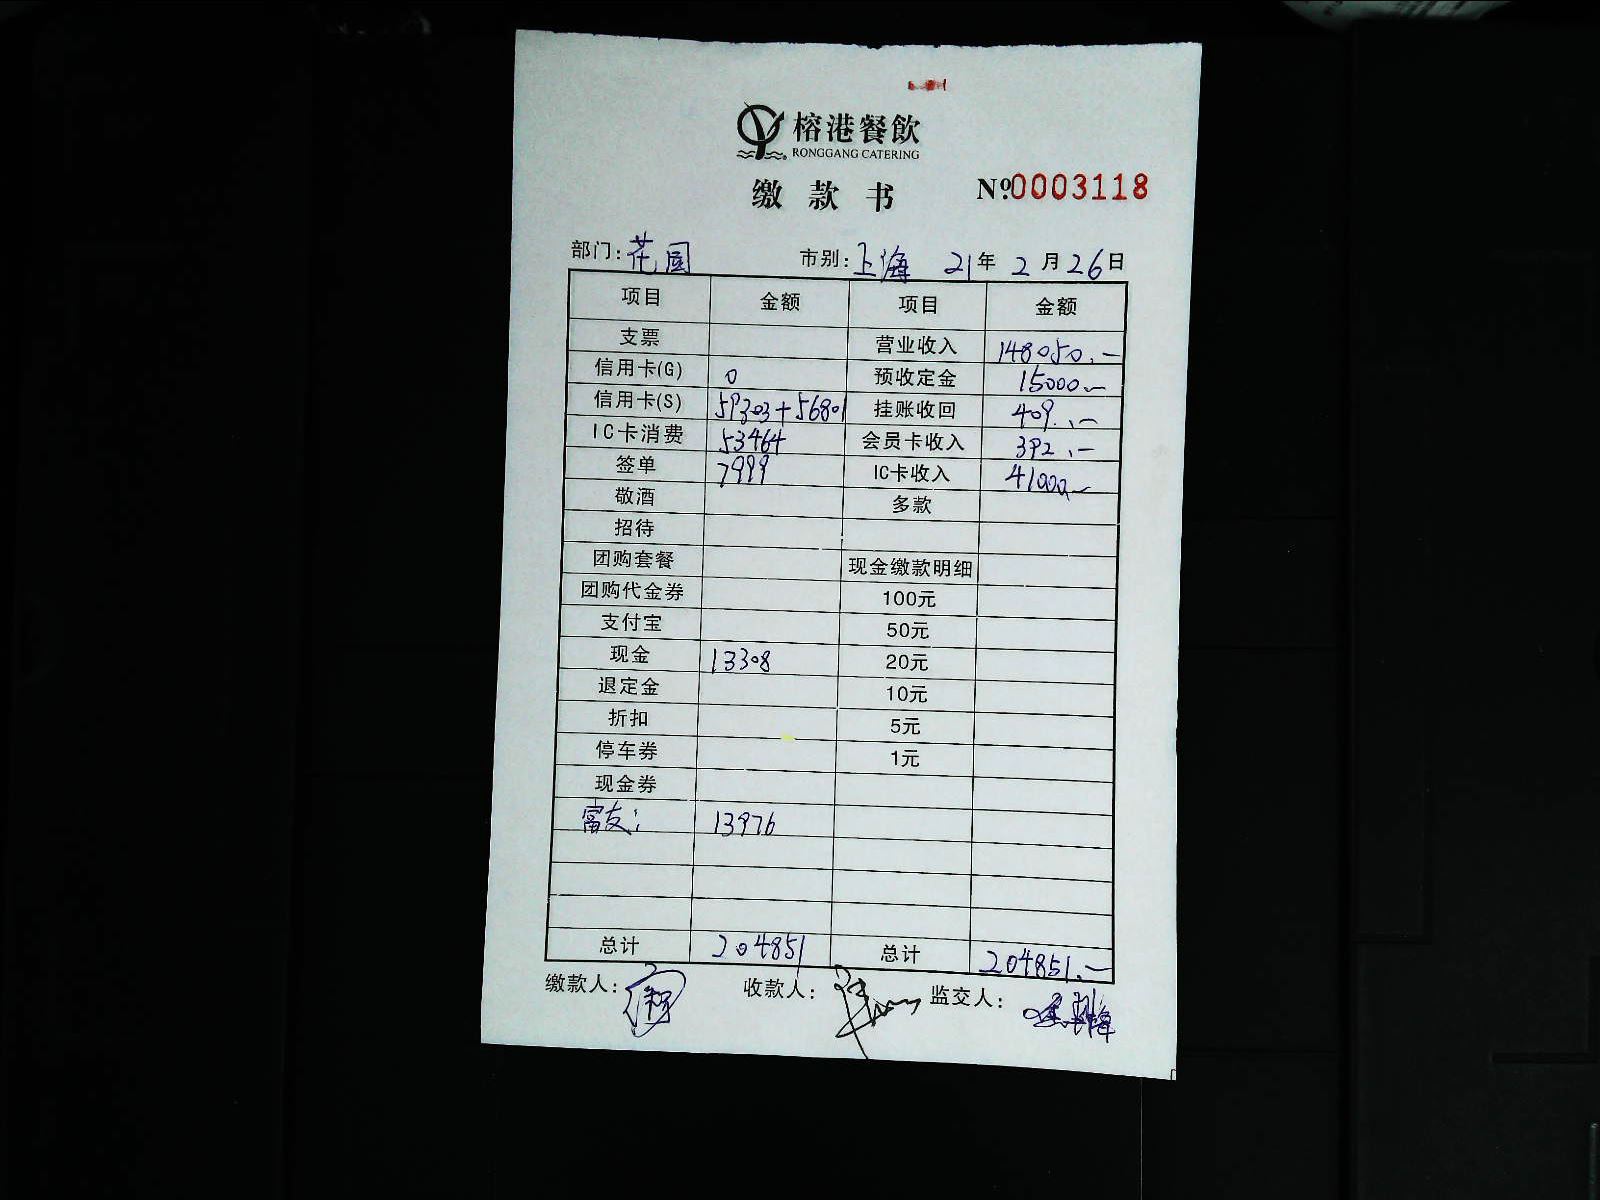 榕港餐飲
RONGGANG CATERING
缴款书 №0003118
部门: 花园 市别: 上海 21年 2月 26日
项目 金额 项目 金额
支票 营业收入 148050.—
信用卡(G) 0 预收定金 15000.—
信用卡(S) 59303+56801 挂账收回 409.—
IC卡消费 53464 会员卡收入 392.—
签单 7999 IC卡收入 41000.—
敬酒 多款
招待
团购套餐 现金缴款明细
团购代金券 100元
支付宝 50元
现金 13308 20元
退定金 10元
折扣 5元
停车券 1元
现金券
富友: 13976
总计 204851 总计 204851.—
缴款人: 收款人: 监交人: